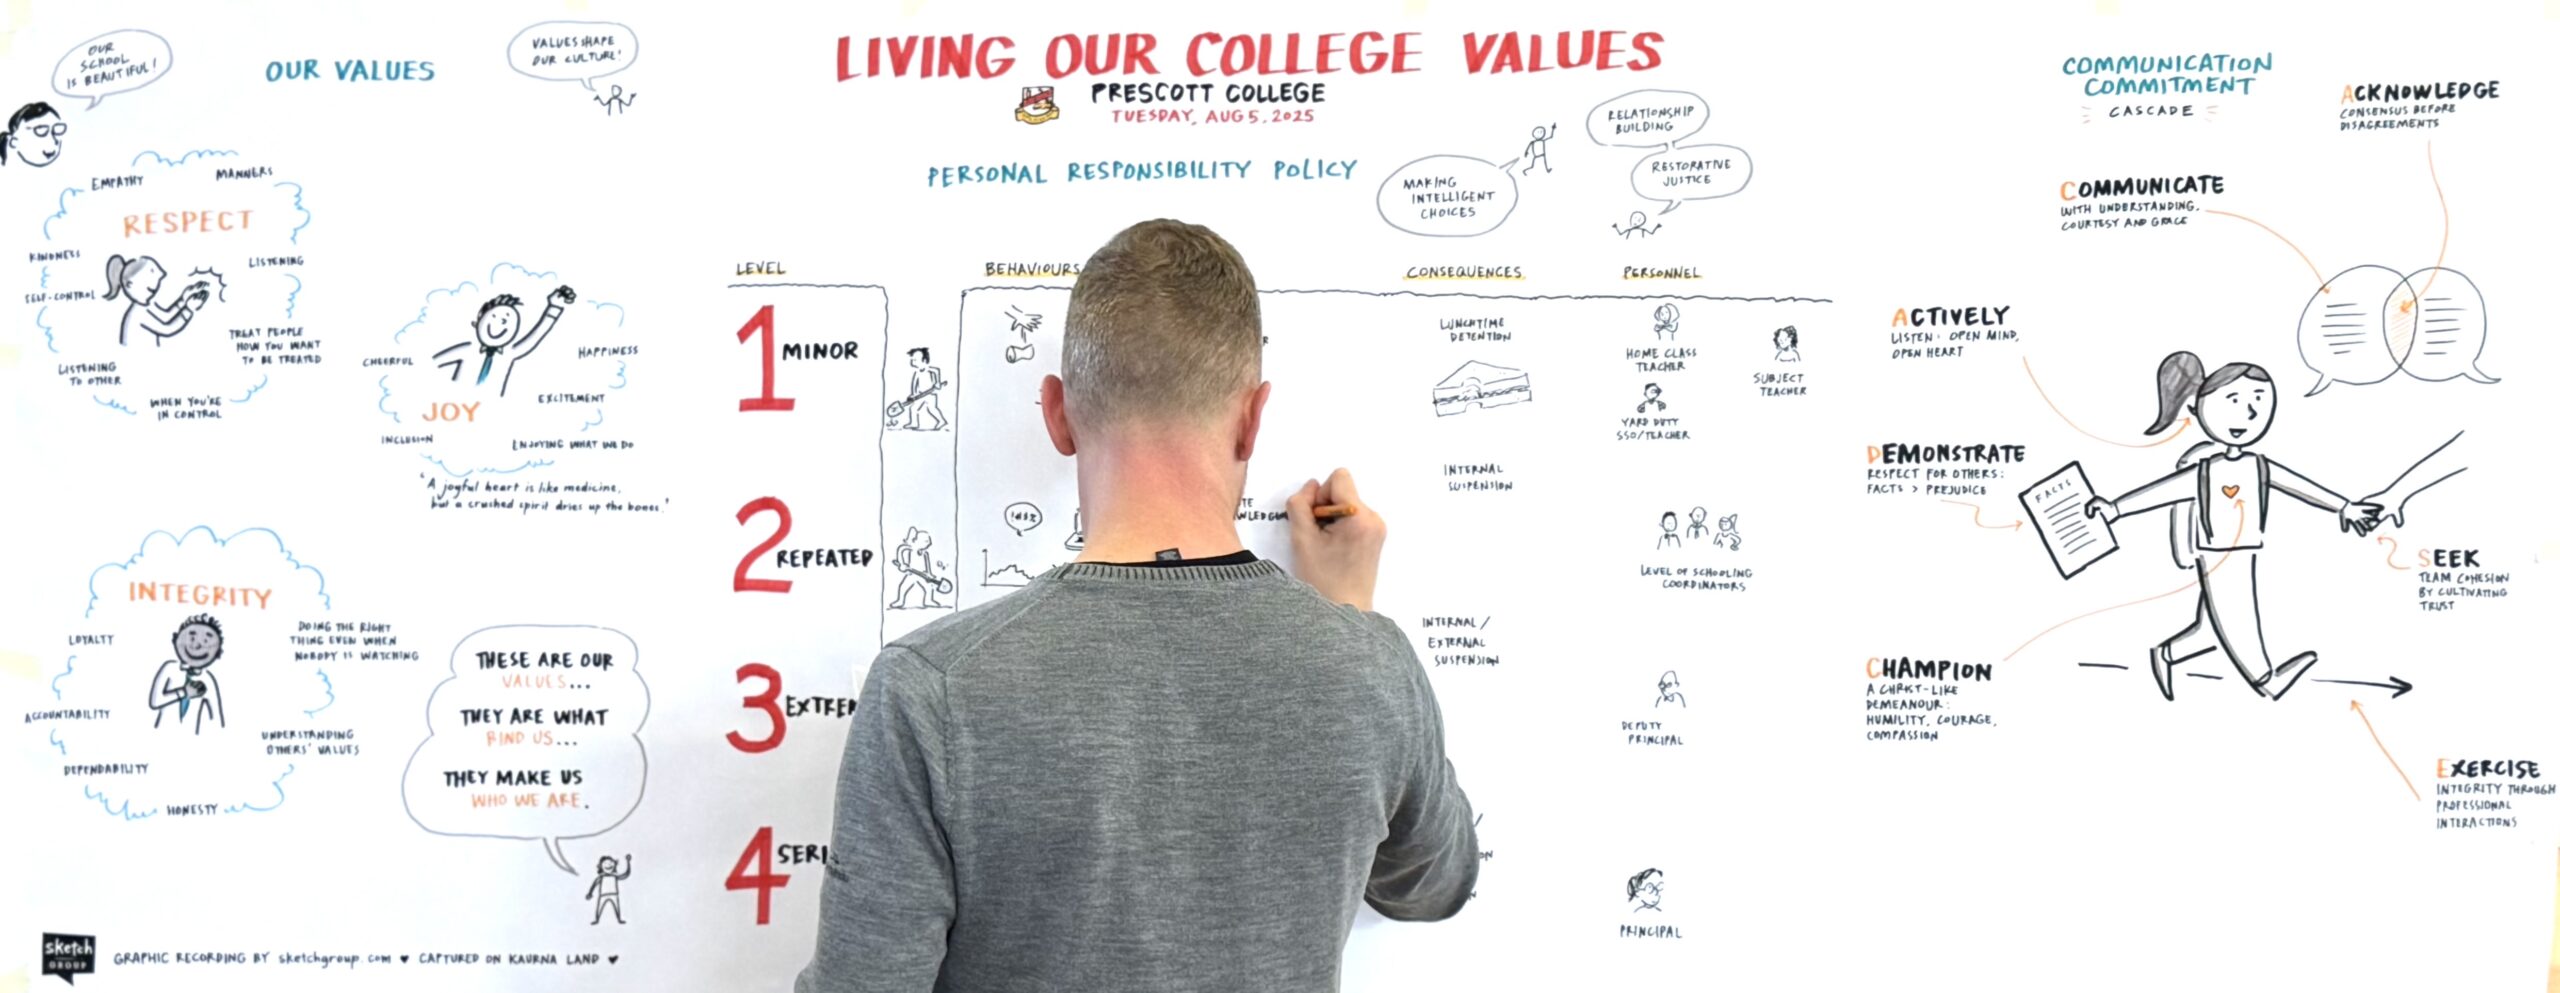 OUR
SCHOOL
IS BEAUTIFUL!
OUR VALUES
VALUES SHAPE
OUR CULTURE!
EMPATHY
MANNERS
RESPECT
KINDNESS
LISTENING
SELF-CONTROL
TREAT PEOPLE
HOW YOU WANT
TO BE TREATED
LISTENING
TO OTHER
WHEN YOU'RE
IN CONTROL
CHEERFUL
HAPPINESS
EXCITEMENT
JOY
INCLUSION
ENJOYING WHAT WE DO
"A joyful heart is like medicine,
but a crushed spirit dries up the bones."
INTEGRITY
LOYALTY
DOING THE RIGHT
THING EVEN WHEN
NOBODY IS WATCHING
ACCOUNTABILITY
UNDERSTANDING
OTHERS' VALUES
DEPENDABILITY
HONESTY
THESE ARE OUR
VALUES...
THEY ARE WHAT
BIND US...
THEY MAKE US
WHO WE ARE.
sketch
GROUP
GRAPHIC RECORDING BY sketchgroup.com ♥ CAPTURED ON KAURNA LAND ♥
LIVING OUR COLLEGE VALUES
PRESCOTT COLLEGE
TUESDAY, AUG 5. 2025
PERSONAL RESPONSIBILITY POLICY
MAKING
INTELLIGENT
CHOICES
RELATIONSHIP
BUILDING
RESTORATIVE
JUSTICE
LEVEL
BEHAVIOURS
CONSEQUENCES
PERSONNEL
1 MINOR
LUNCHTIME
DETENTION
HOME CLASS
TEACHER
SUBJECT
TEACHER
YARD DUTY
SSO/TEACHER
INTERNAL
SUSPENSION
2 REPEATED
LEVEL OF SCHOOLING
COORDINATORS
INTERNAL /
EXTERNAL
SUSPENSION
3 EXTREM
DEPUTY
PRINCIPAL
4 SERI
PRINCIPAL
COMMUNICATION
COMMITMENT
CASCADE
ACKNOWLEDGE
CONSENSUS BEFORE
DISAGREEMENTS
COMMUNICATE
WITH UNDERSTANDING,
COURTESY AND GRACE
ACTIVELY
LISTEN: OPEN MIND,
OPEN HEART
DEMONSTRATE
RESPECT FOR OTHERS:
FACTS > PREJUDICE
FACTS
SEEK
TEAM COHESION
BY CULTIVATING
TRUST
CHAMPION
A CHRIST-LIKE
DEMEANOUR:
HUMILITY, COURAGE,
COMPASSION
EXERCISE
INTEGRITY THROUGH
PROFESSIONAL
INTERACTIONS